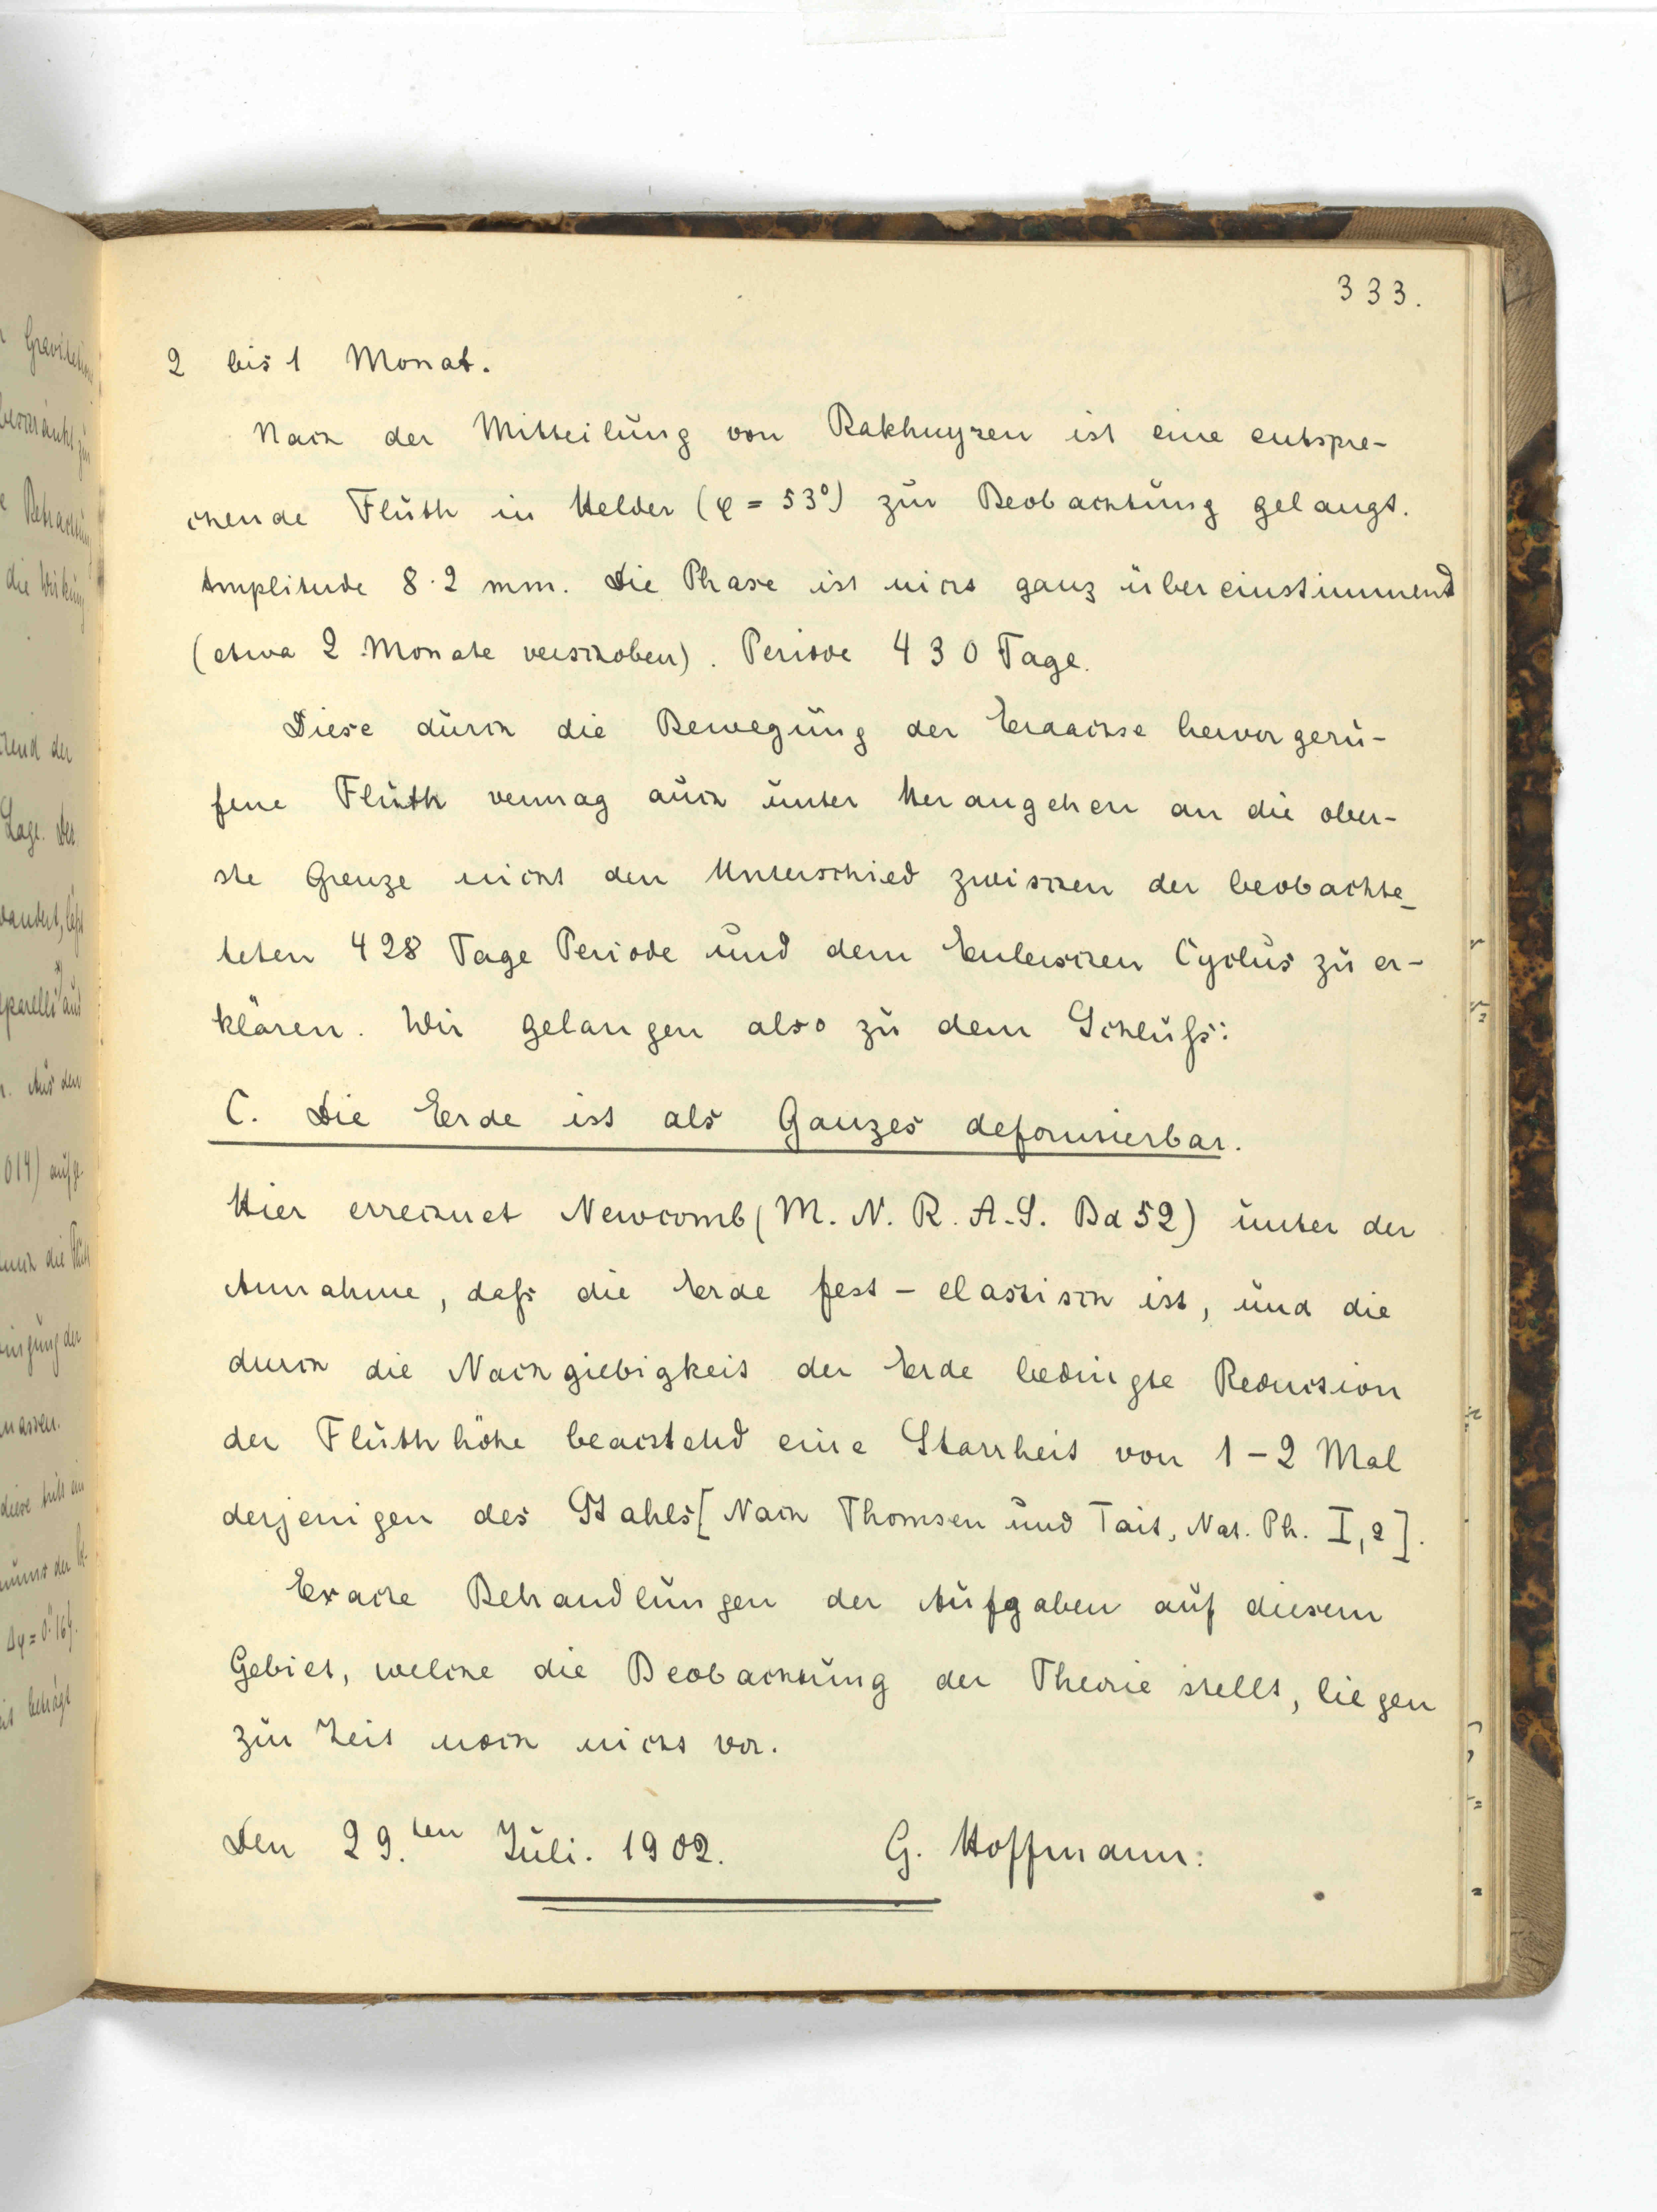 333.
2 bis 1 Monat.
Nach der Mitteilung von Bakhuyzen ist eine entspre-
chende Fluth in Helder (φ = 53°) zur Beobachtung gelangt.
Amplitude 8·2 mm. Die Phase ist nicht ganz übereinstimmend
(etwa 2 Monate verschoben). Periode 430 Tage.
Diese durch die Bewegung der Erdachse hervorgeru-
fene Fluth vermag auch unter Herangehen an die ober-
ste Grenze nicht den Unterschied zwischen der beobachte-
teten 428 Tage Periode und dem Eulerschen Cyclus zu er-
klären. Wir gelangen also zu dem Schluß:
C. Die Erde ist als Ganzes deformierbar.
Hier errechnet Newcomb (M. N. R. A. S. Bd 52) unter der
Annahme, daß die Erde fest - elastisch ist, und die
durch die Nachgiebigkeit der Erde bedingte Reduction
der Fluthhöhe beachtend eine Starrheit von 1 - 2 Mal
derjenigen des Stahls [Nach Thomsen und Tait, Nat. Ph. I, 2].
Exacte Behandlungen der Aufgaben auf diesem
Gebiet, welche die Beobachtung der Theorie stellt, liegen
zur Zeit noch nicht vor.
Den 29.ten Juli. 1902. G. Hoffmann.